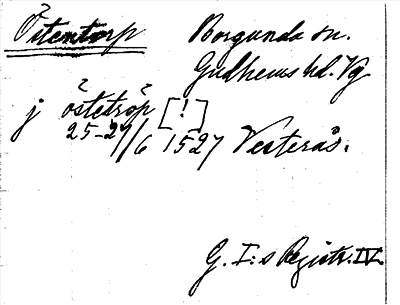 Östentorp Borgunda sn.
Gudhems hd. Vg
j östetröp [!]
25-27/6 1527 Vesterås.
G. I:s Registr. IV.